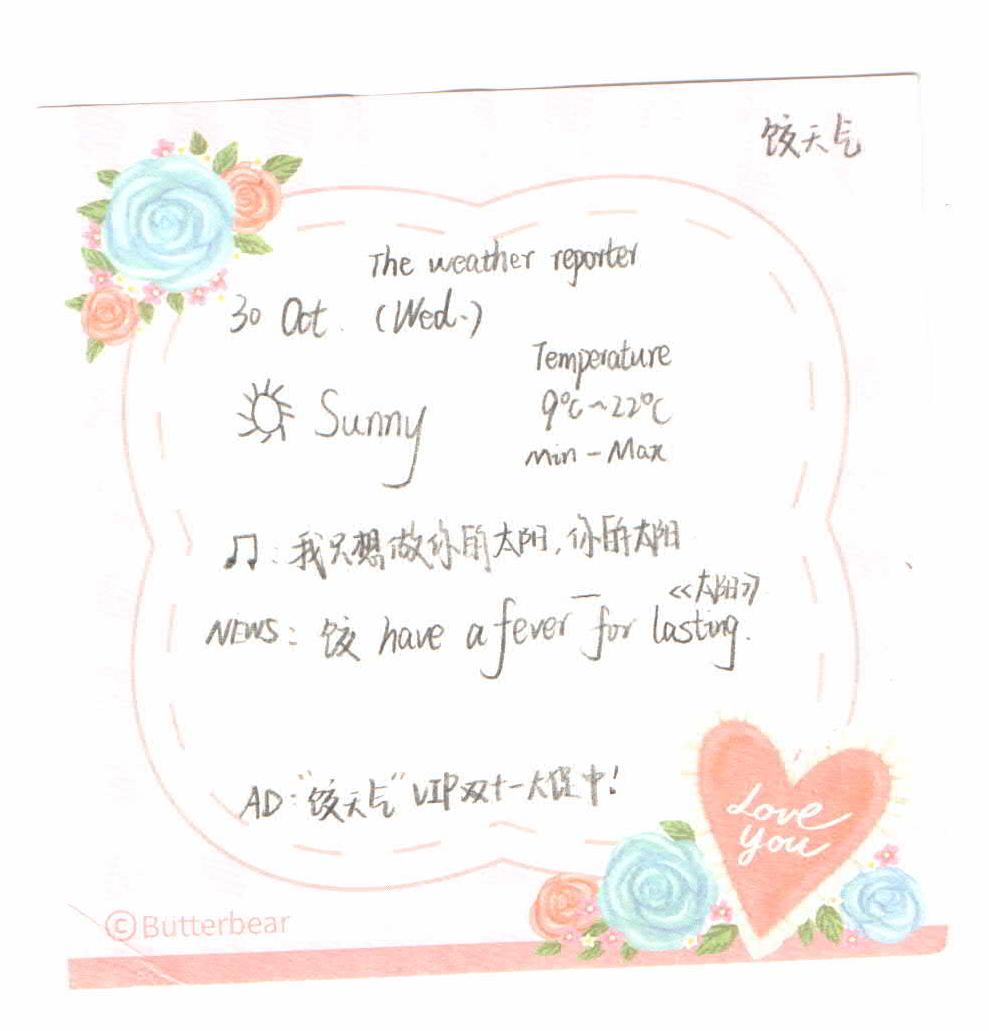 饺天气
The weather reporter
30 Oct. (Wed.)
Temperature
Sunny
9°C~22°C
min - Max
♫: 我只想做你的太阳,你的太阳
《太阳》
NEWS: 饺 have a fever for lasting.
AD: "饺天气" VIP双十一大促中!
Love
You
©Butterbear